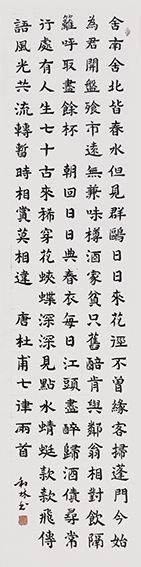 舍南舍北皆春水但見群鷗日日來花逕不曾緣客掃蓬門今始
為君開盤飧市遠無兼味樽酒家貧只舊醅肯與鄰翁相對飲隔
籬呼取盡餘杯 朝回日日典春衣每日江頭盡醉歸酒債尋常
行處有人生七十古來稀穿花蛺蝶深深見點水蜻蜓款款飛傳
語風光共流轉暫時相賞莫相違 唐杜甫七律兩首
和林书